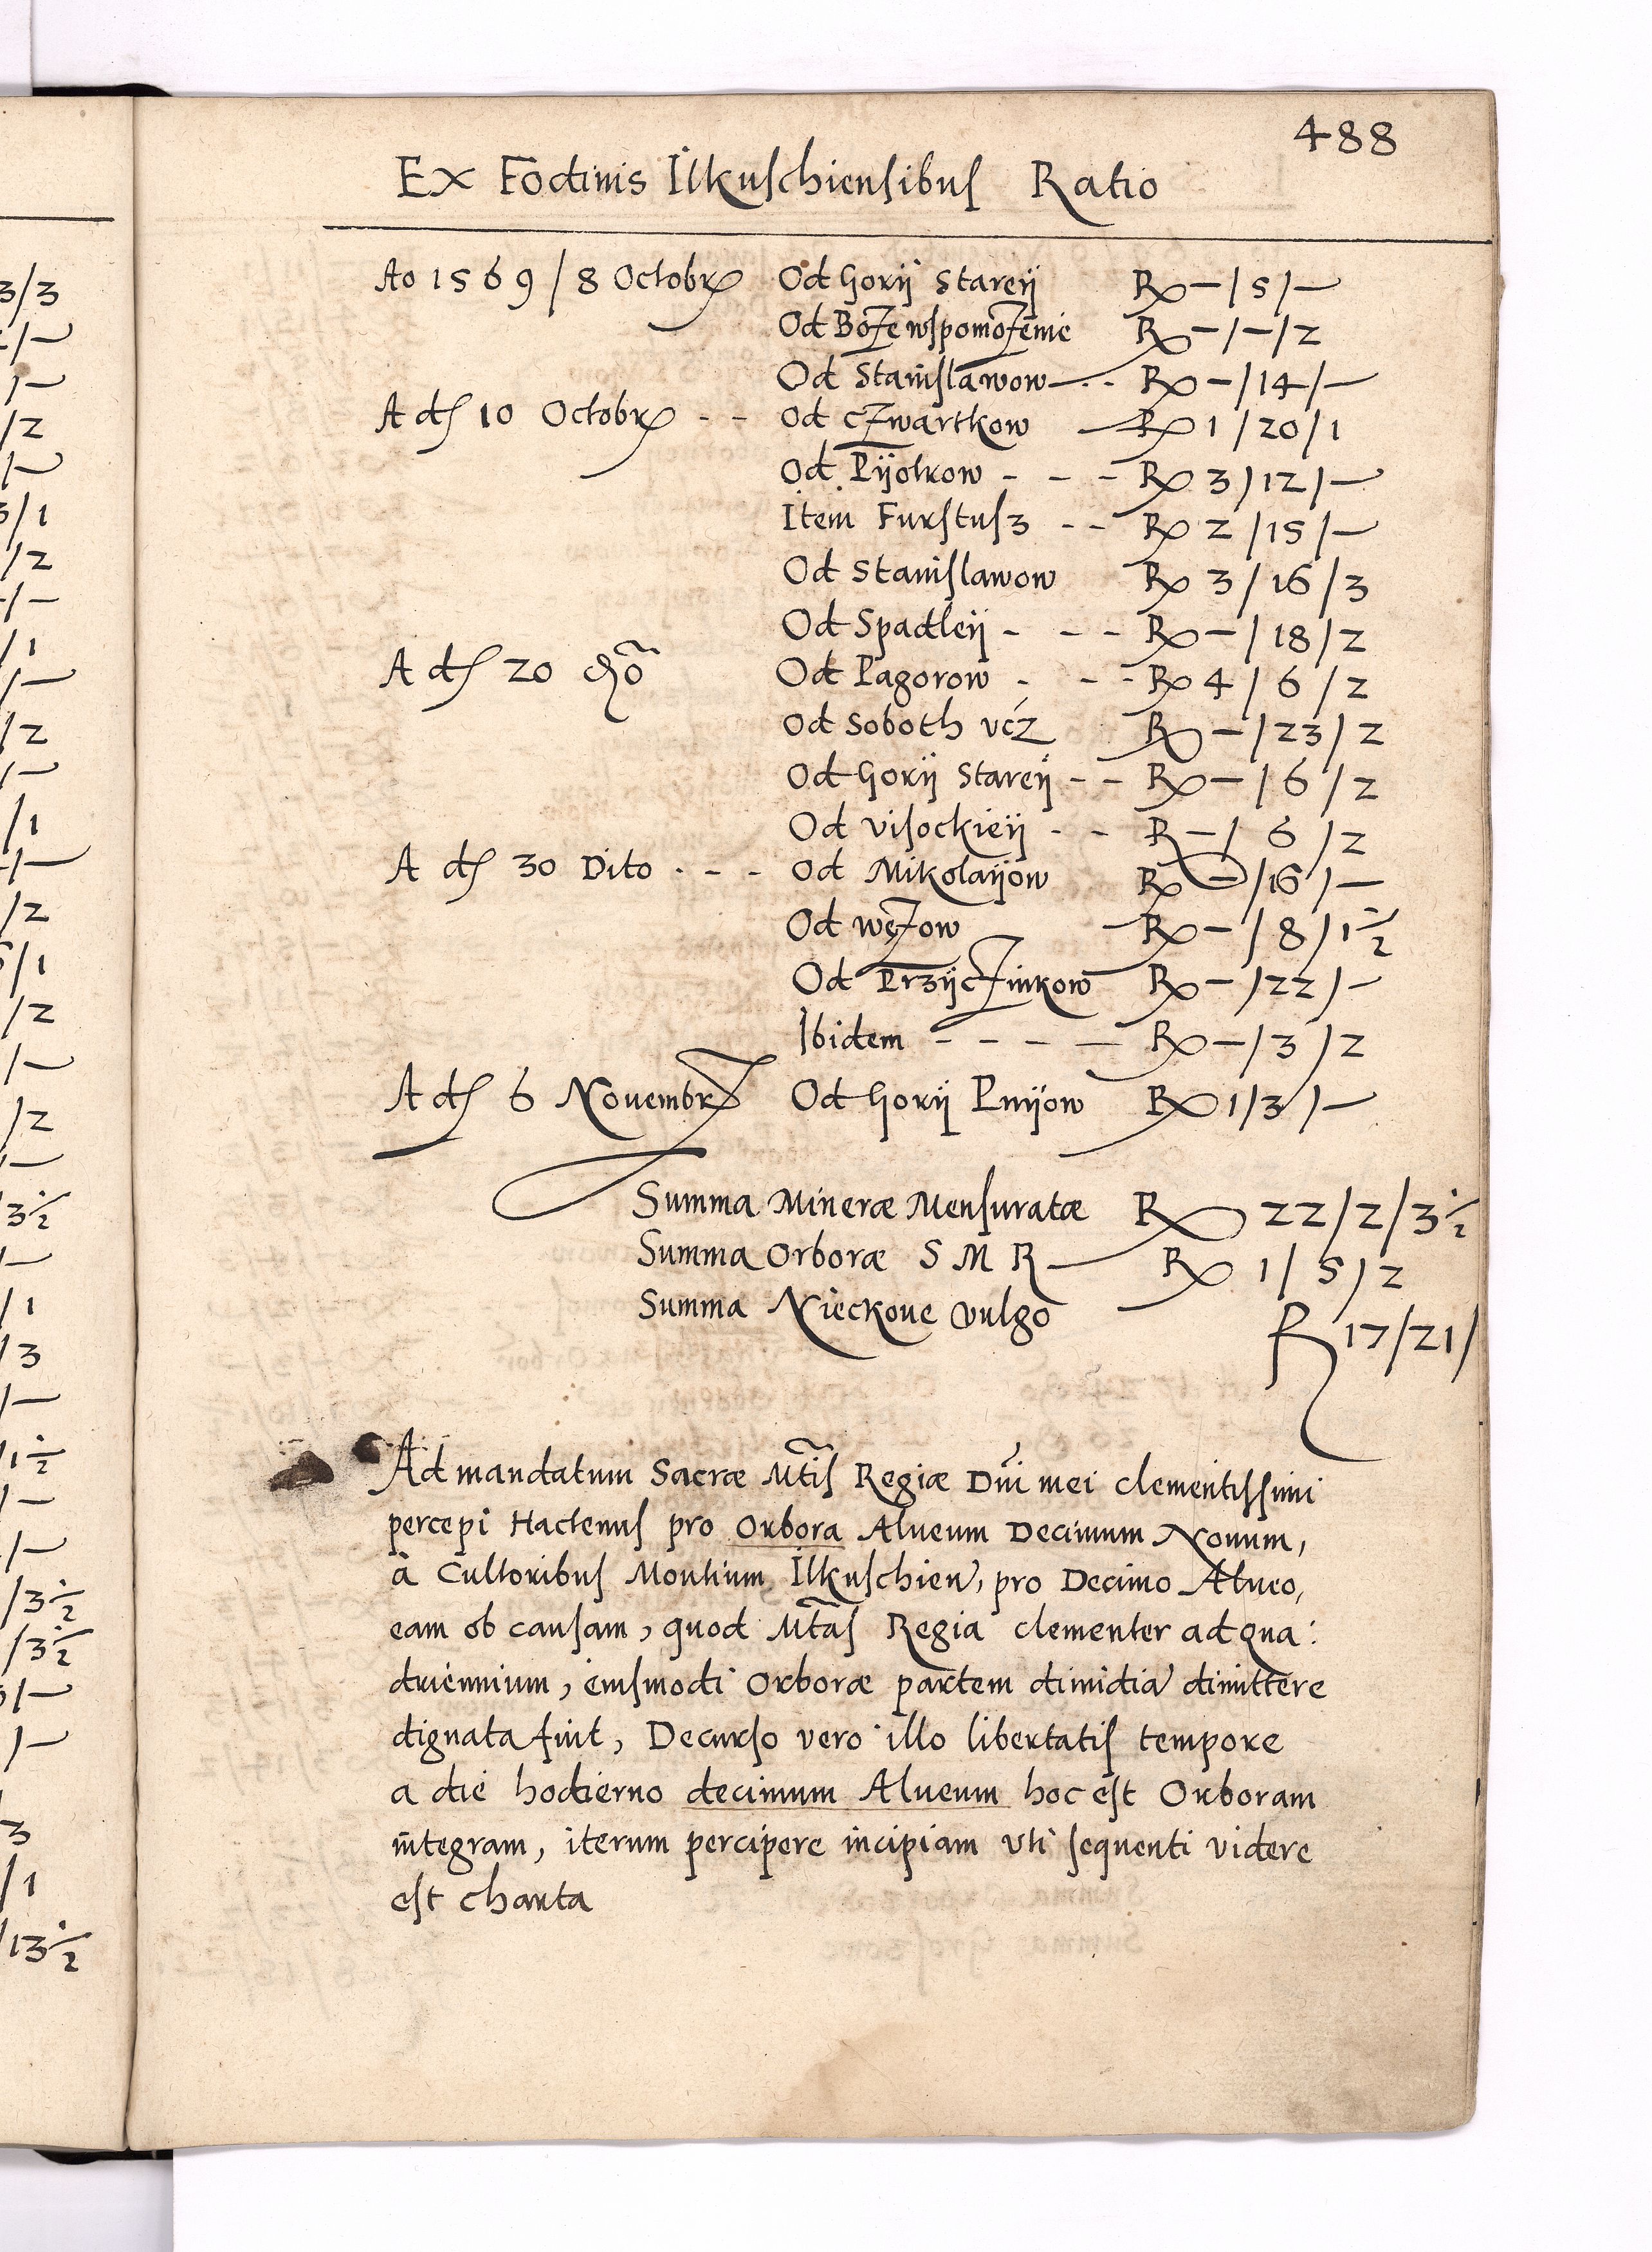 488
Ex Fodinis Ilkuschiensibus Ratio
Ao 1569 / 8 Octobr Od Gorÿ Stareÿ R — / 5 / —
Od Boże wspomożenie R — / — / 2
Od Stanislawow - - R — / 14 / —
A di 10 Octobr - - Od Czwartkow R 1 / 20 / 1
Od Pÿotrow - - - R 3 / 12 / —
Item Furstusz - - R 2 / 15 / —
Od Stanislawow R 3 / 16 / 3
Od Spadleÿ - - - R — / 18 / 2
A di 20 dto Od Pagorow - - - R 4 / 6 / 2
Od Soboth R — / 23 / 2
Od Gorÿ Stareÿ - - R — / 6 / 2
Od Visockieÿ - - R — / 6 / 2
A di 30 Dito - - - Od Mikolaÿow R — / 16 / —
Od Wężow R — / 8 / 1 1/2
Od Przÿczinkow R — / 22 / —
Ibidem - - - — R — / 3 / 2
A di 6 Novembr Od Gorÿ Pnÿow R 1 / 3 / —
Summa Mineræ Mensuratæ R 22 / 2 / 3 1/2
Summa Orboræ S M R — R 1 / 5 / 2
Summa Nieckove vulgo R 17 / 21 /
Ad mandatum Sacræ Mtis Regiæ Dni mei clementissimi
percepi Hactenus pro Orbora Alveum Decimum Nonum,
à Cultoribus Montium Ilkuschien, pro Decimo Alveo,
eam ob causam, quod Mtas Regia clementer ad qua:
driennium, eiusmodi Orboræ partem dimidia dimittere
dignata fuit, Decurso vero illo libertatis tempore
a die hodierno decimum Alveum hoc est Orboram
integram, iterum percipere incipiam vti sequenti videre
est charta
3/3
/—
/—
/2
/—
3/1
/2
/—
/1
/—
/2
/—
/1
/—
/2
/1
/2
/—
/2
/—
3 1/2
—
/1
/3
/—
/1 1/2
/—
/—
/3 1/2
/3 1/2
/—
/—
3
/1
/13 1/2